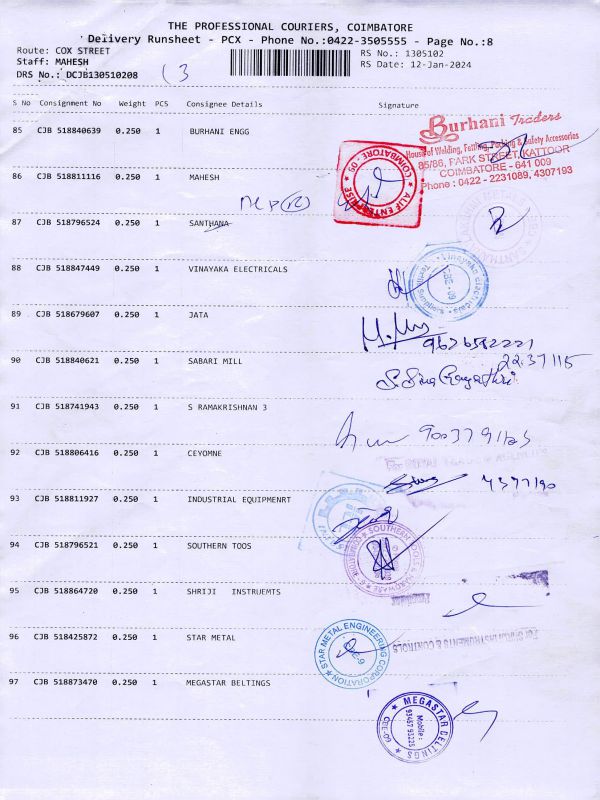 THE PROFESSIONAL COURIERS, COIMBATORE
Delivery Runsheet - PCX - Phone No.:0422-3505555 - Page No.:8
Route: COX STREET
RS No.: 1305102
Staff: MAHESH
RS Date: 12-Jan-2024
DRS No.: DCJB130510208
(3
S No Consignment No Weight PCS Consignee Details Signature
Burhani Traders
85 CJB 518840639 0.250 1 BURHANI ENGG
House of Welding, Fettling, Packing & Safety Accessories
85/86, PARK STREET, KATTOOR
COIMBATORE - 641 009
Phone : 0422 - 2231089, 4307193
86 CJB 518811116 0.250 1 MAHESH
ALIF ENTERPRISE COIMBATORE - 09
87 CJB 518796524 0.250 1 SANTHANA
88 CJB 518847449 0.250 1 VINAYAKA ELECTRICALS
Vinayaka Electricals
CBE - 09
89 CJB 518679607 0.250 1 JATA
90 CJB 518840621 0.250 1 SABARI MILL
22.37115
91 CJB 518741943 0.250 1 S RAMAKRISHNAN 3
92 CJB 518806416 0.250 1 CEYOMNE
93 CJB 518811927 0.250 1 INDUSTRIAL EQUIPMENRT
94 CJB 518796521 0.250 1 SOUTHERN TOOS
95 CJB 518864720 0.250 1 SHRIJI INSTRUEMTS
For SHRIJI INSTRUMENTS & CONTROLS
96 CJB 518425872 0.250 1 STAR METAL
STAR METAL ENGINEERING CORPORATION
97 CJB 518873470 0.250 1 MEGASTAR BELTINGS
MEGASTAR BELTINGS
Mobile :
93457 93225
CBE-09